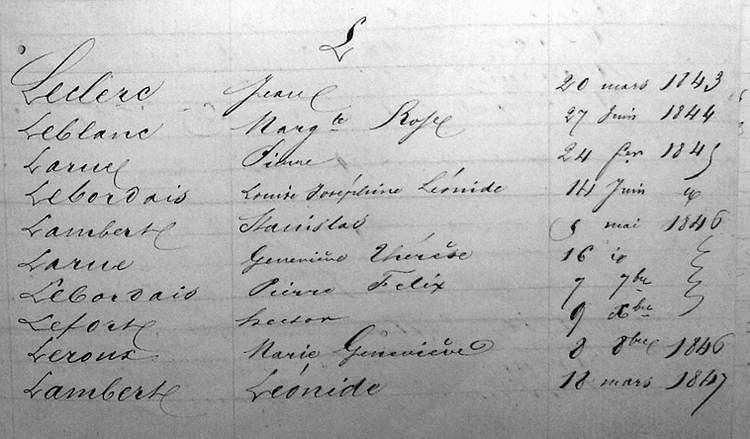 L
Leclerc Jean 20 mars 1843
Leblanc Marg.te Rose 27 Juin 1844
Larue Pierre 24 fer 1845
Lebordais Louise Joséphine Léonide 14 Juin
Lambert Stanislas 5 mai 1846
Larue Geneviève Thérèse 16 io
Lebordais Pierre Felix 7 7bre
Lefort hector 9 Xbre
Leroux Marie Geneviève 8 8bre 1846
Lambert Léonide 18 mars 1847